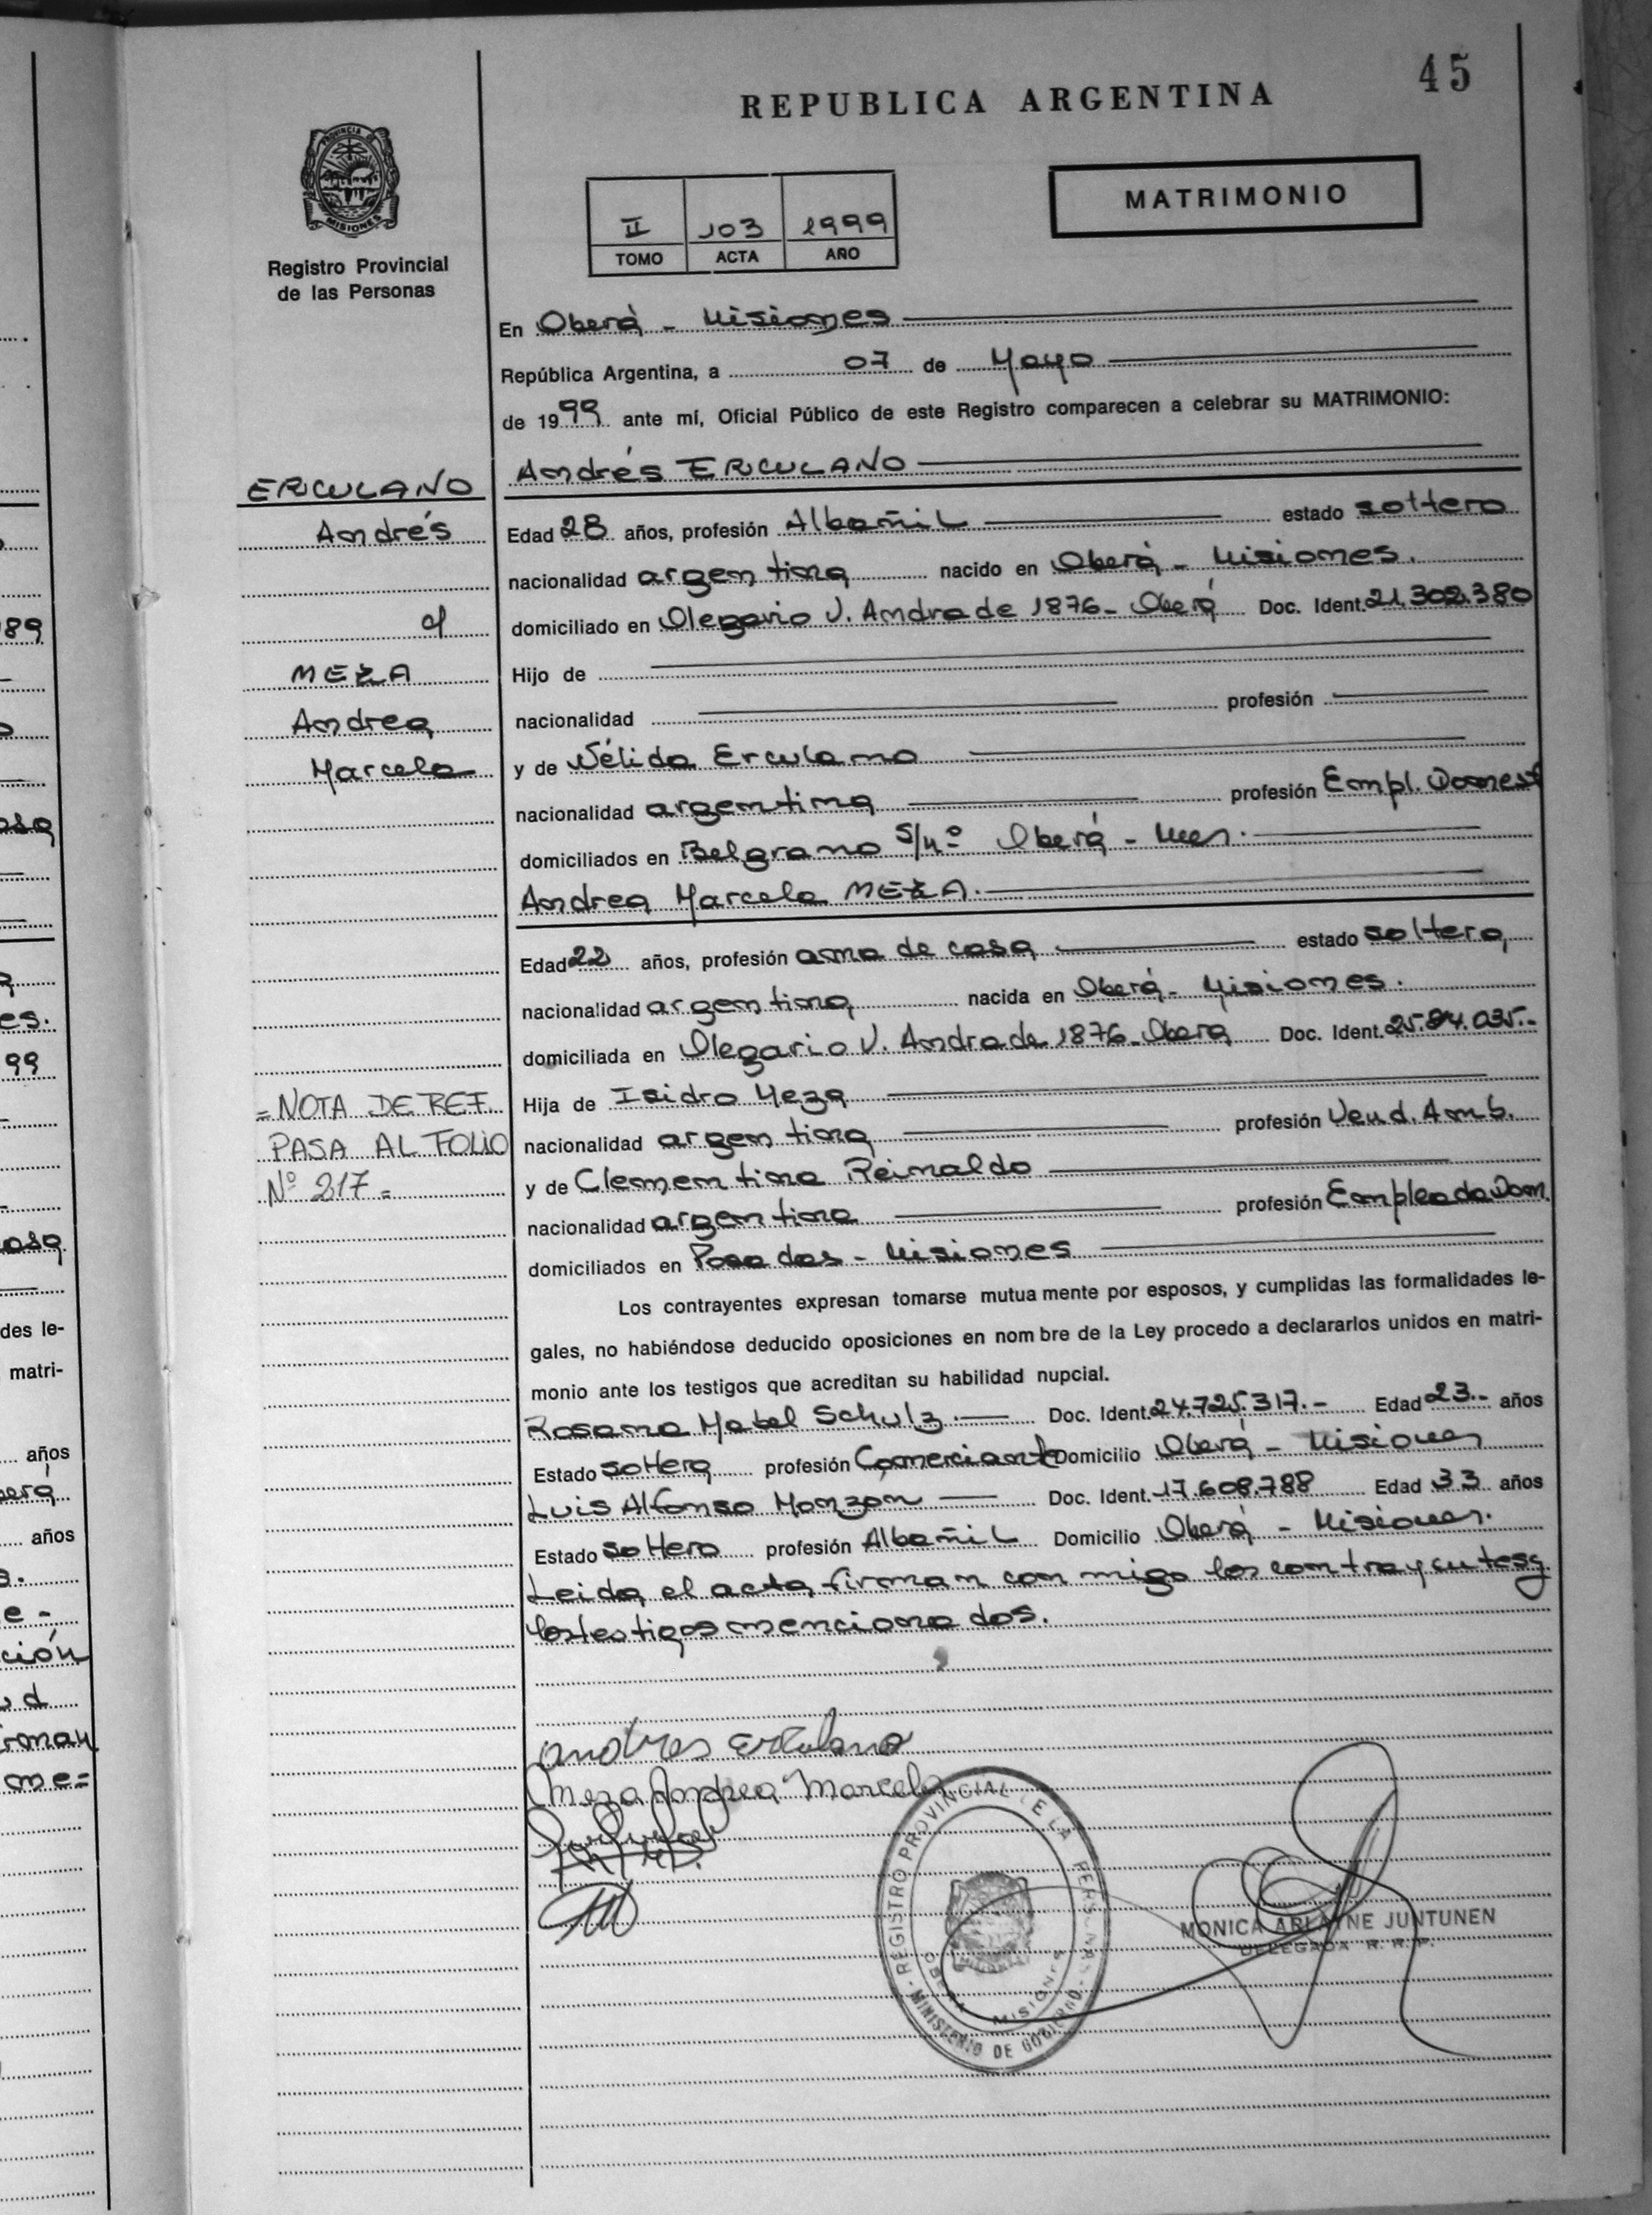 45
REPUBLICA ARGENTINA
PROVINCIA DE
MISIONES
Registro Provincial
de las Personas
II 103 1999
TOMO ACTA AÑO
MATRIMONIO
En Oberá - Misiones
República Argentina, a 07 de Mayo
de 1999 ante mí, Oficial Público de este Registro comparecen a celebrar su MATRIMONIO:
Andrés ERCULANO
ERCULANO
Andrés
MEZA
Andrea
Marcela
Edad 28 años, profesión Albañil estado soltero
nacionalidad argentina nacido en Oberá - Misiones.
domiciliado en Olegario V. Andrade 1876 - Oberá Doc. Ident. 21.302.380
Hijo de
nacionalidad profesión
y de Nélida Erculano
nacionalidad argentina profesión Empl. Domest
domiciliados en Belgrano S/nº Oberá - Mnes.
Andrea Marcela MEZA.
Edad 22 años, profesión ama de casa estado soltera
nacionalidad argentina nacida en Oberá - Misiones.
domiciliada en Olegario V. Andrade 1876 - Oberá Doc. Ident.
Hija de Isidro Meza
nacionalidad argentina profesión Vend. Amb.
y de Clementina Reinaldo
nacionalidad argentina profesión Empleada Dom.
domiciliados en Posadas - Misiones
= NOTA DE REF.
PASA AL FOLIO
Nº 217 =
Los contrayentes expresan tomarse mutua mente por esposos, y cumplidas las formalidades le-
gales, no habiéndose deducido oposiciones en nom bre de la Ley procedo a declararlos unidos en matri-
monio ante los testigos que acreditan su habilidad nupcial.
Rosana Mabel Schulz.- Doc. Ident. 24.725.317.- Edad 23.- años
Estado soltera profesión Comerciante Domicilio Oberá - Misiones
Luis Alfonso Monzon - Doc. Ident. 17.608.788 Edad 33 años
Estado soltero profesión Albañil Domicilio Oberá - Misiones.
Leida el acta firman con migo los contrayentes y
los testigos mencionados.
Andres Erculano
Meza Andrea Marcela
REGISTRO PROVINCIAL DE LA PERSONAS
OBERA MISIONES
MINISTERIO DE GOBIERNO
MONICA ARLAYNE JUNTUNEN
DELEGADA R. R. P.
89
99
des le-
matri-
años
años
e -
ción
me=